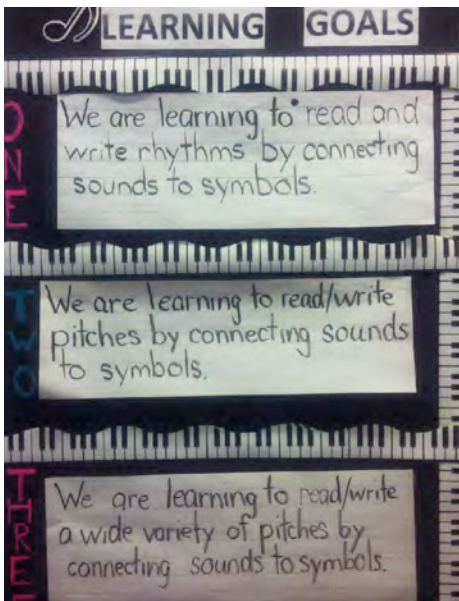 LEARNING GOALS
ONE
We are learning to read and
write rhythms by connecting
sounds to symbols.
TWO
We are learning to read/write
pitches by connecting sounds
to symbols.
THREE
We are learning to read/write
a wide variety of pitches by
connecting sounds to symbols.